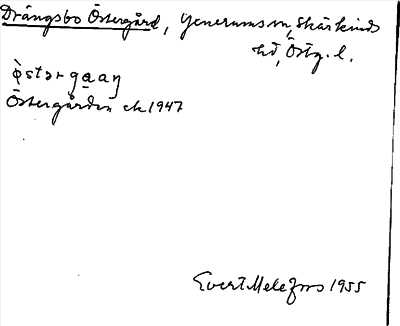 Drängsbo Östergård, Yxnerums sn, Skärkinds
hd, Östg. l.
ö̀stərgaaŋ
Östergården ek 1947
Evert Melefors 1955